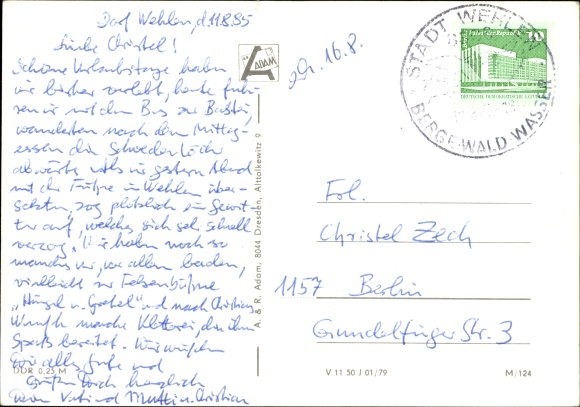 Dorf Wehlen, d. 11.8.85
Liebe Christel!
Schöne Urlaubstage haben
wir bisher verlebt, heute fuhr
ren wir mit dem Bus zur Bastei,
wanderten nach dem Mittag-
essen die Schwedenlöcher
abwärts und gestern Abend
mit der Fähre in Wehlen über-
setzten, zog plötzlich ein Gewit-
ter auf, welches sich sehr schnell
verzog. Wir haben noch so
manches vor, vor allem baden,
vielleicht zur Felsenbühne
"Hänsel u. Gretel" und nach Christians
Wunsch manche Kletterei, die ihm
Spaß bereitet. Wir wünschen
Dir alles Gute und
grüßen Dich herzlich
Deine Vati und Mutti u. Christian
DDR 0,25 M
ADAM
A
A. & R. Adam, 8044 Dresden, Altlolkewitz 9
16.8.
STADT WEHLEN
BERGE-WALD-WASSER
10
Palast der Republik
DEUTSCHE DEMOKRATISCHE
Frl.
Christel Zech
1157 Berlin
Grundelfinger Str. 3
V 11 50 J 01/79
M/124